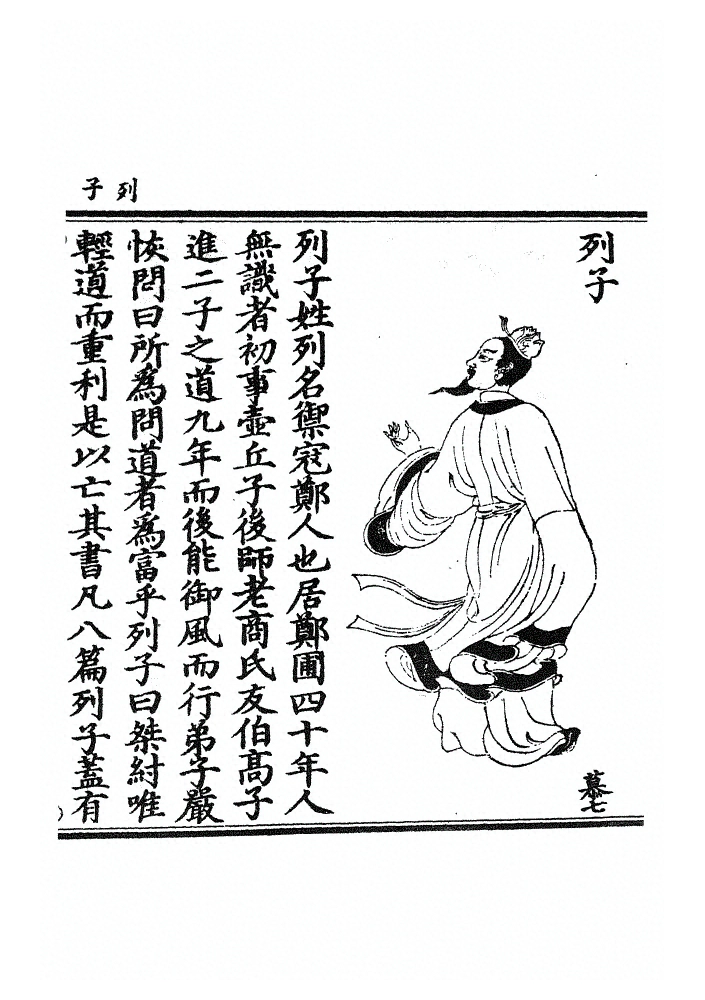 列子
列子
慕七
列子姓列名禦寇鄭人也居鄭圃四十年人
無識者初事壺丘子後師老商氏友伯高子
進二子之道九年而後能御風而行弟子嚴
恢問曰所為問道者為富乎列子曰桀紂唯
輕道而重利是以亡其書凡八篇列子蓋有